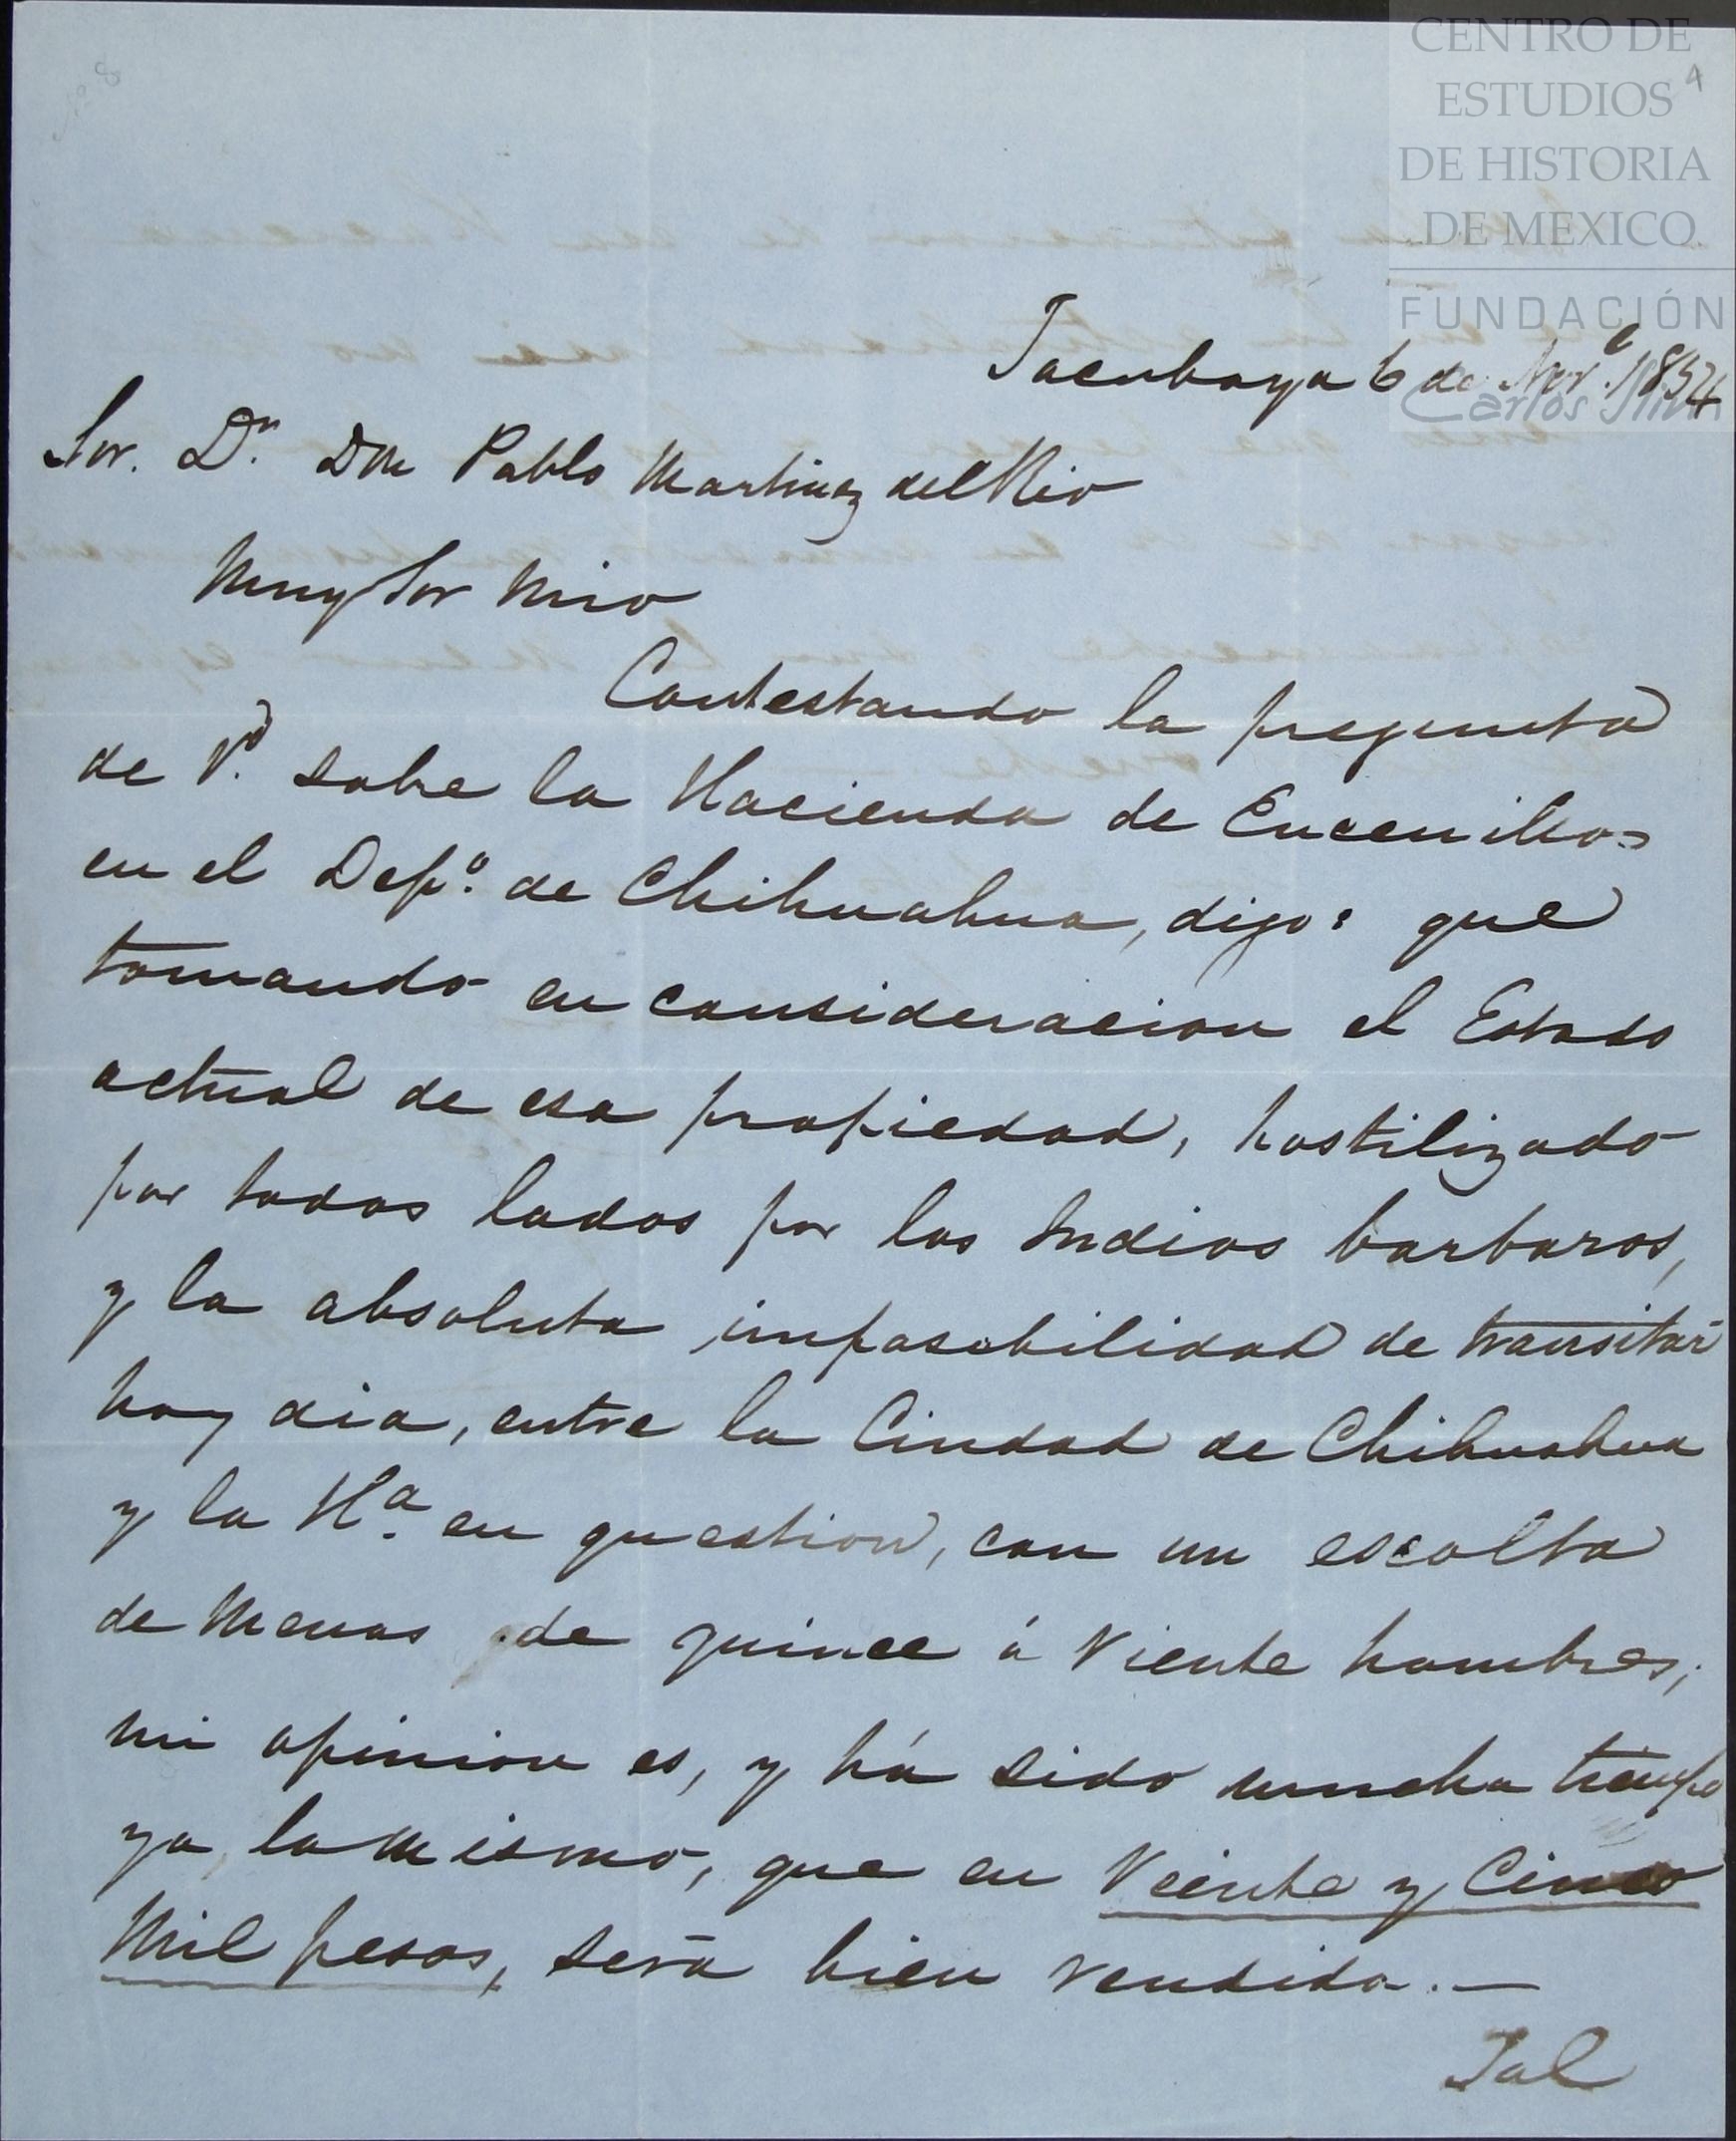 Nº 8
CENTRO DE
ESTUDIOS
DE HISTORIA
DE MEXICO
FUNDACIÓN
Carlos Slim
4
Tacubaya 6 de Nov.e 1854
Sor. Dn. Don Pablo Martinez del Rio
Muy Sor Mio
Contestando la pregunta
de Vd. sobre la Hacienda de Encenillos
en el Depo. de Chihuahua, digo: que
tomando en consideracion el Estado
actual de esa propiedad, hostilizado
por todos lados por los Indios barbaros,
y la absoluta imposibilidad de transitar
hoy dia, entre la Ciudad de Chihuahua
y la Ha. en question, con un escolta
de menos de quince á Viente hombres,
mi opinion es, y há sido mucho tiempo
ya, lo mismo, que en Veinte y Cinco
Mil pesos, será bien vendida. —
Tal